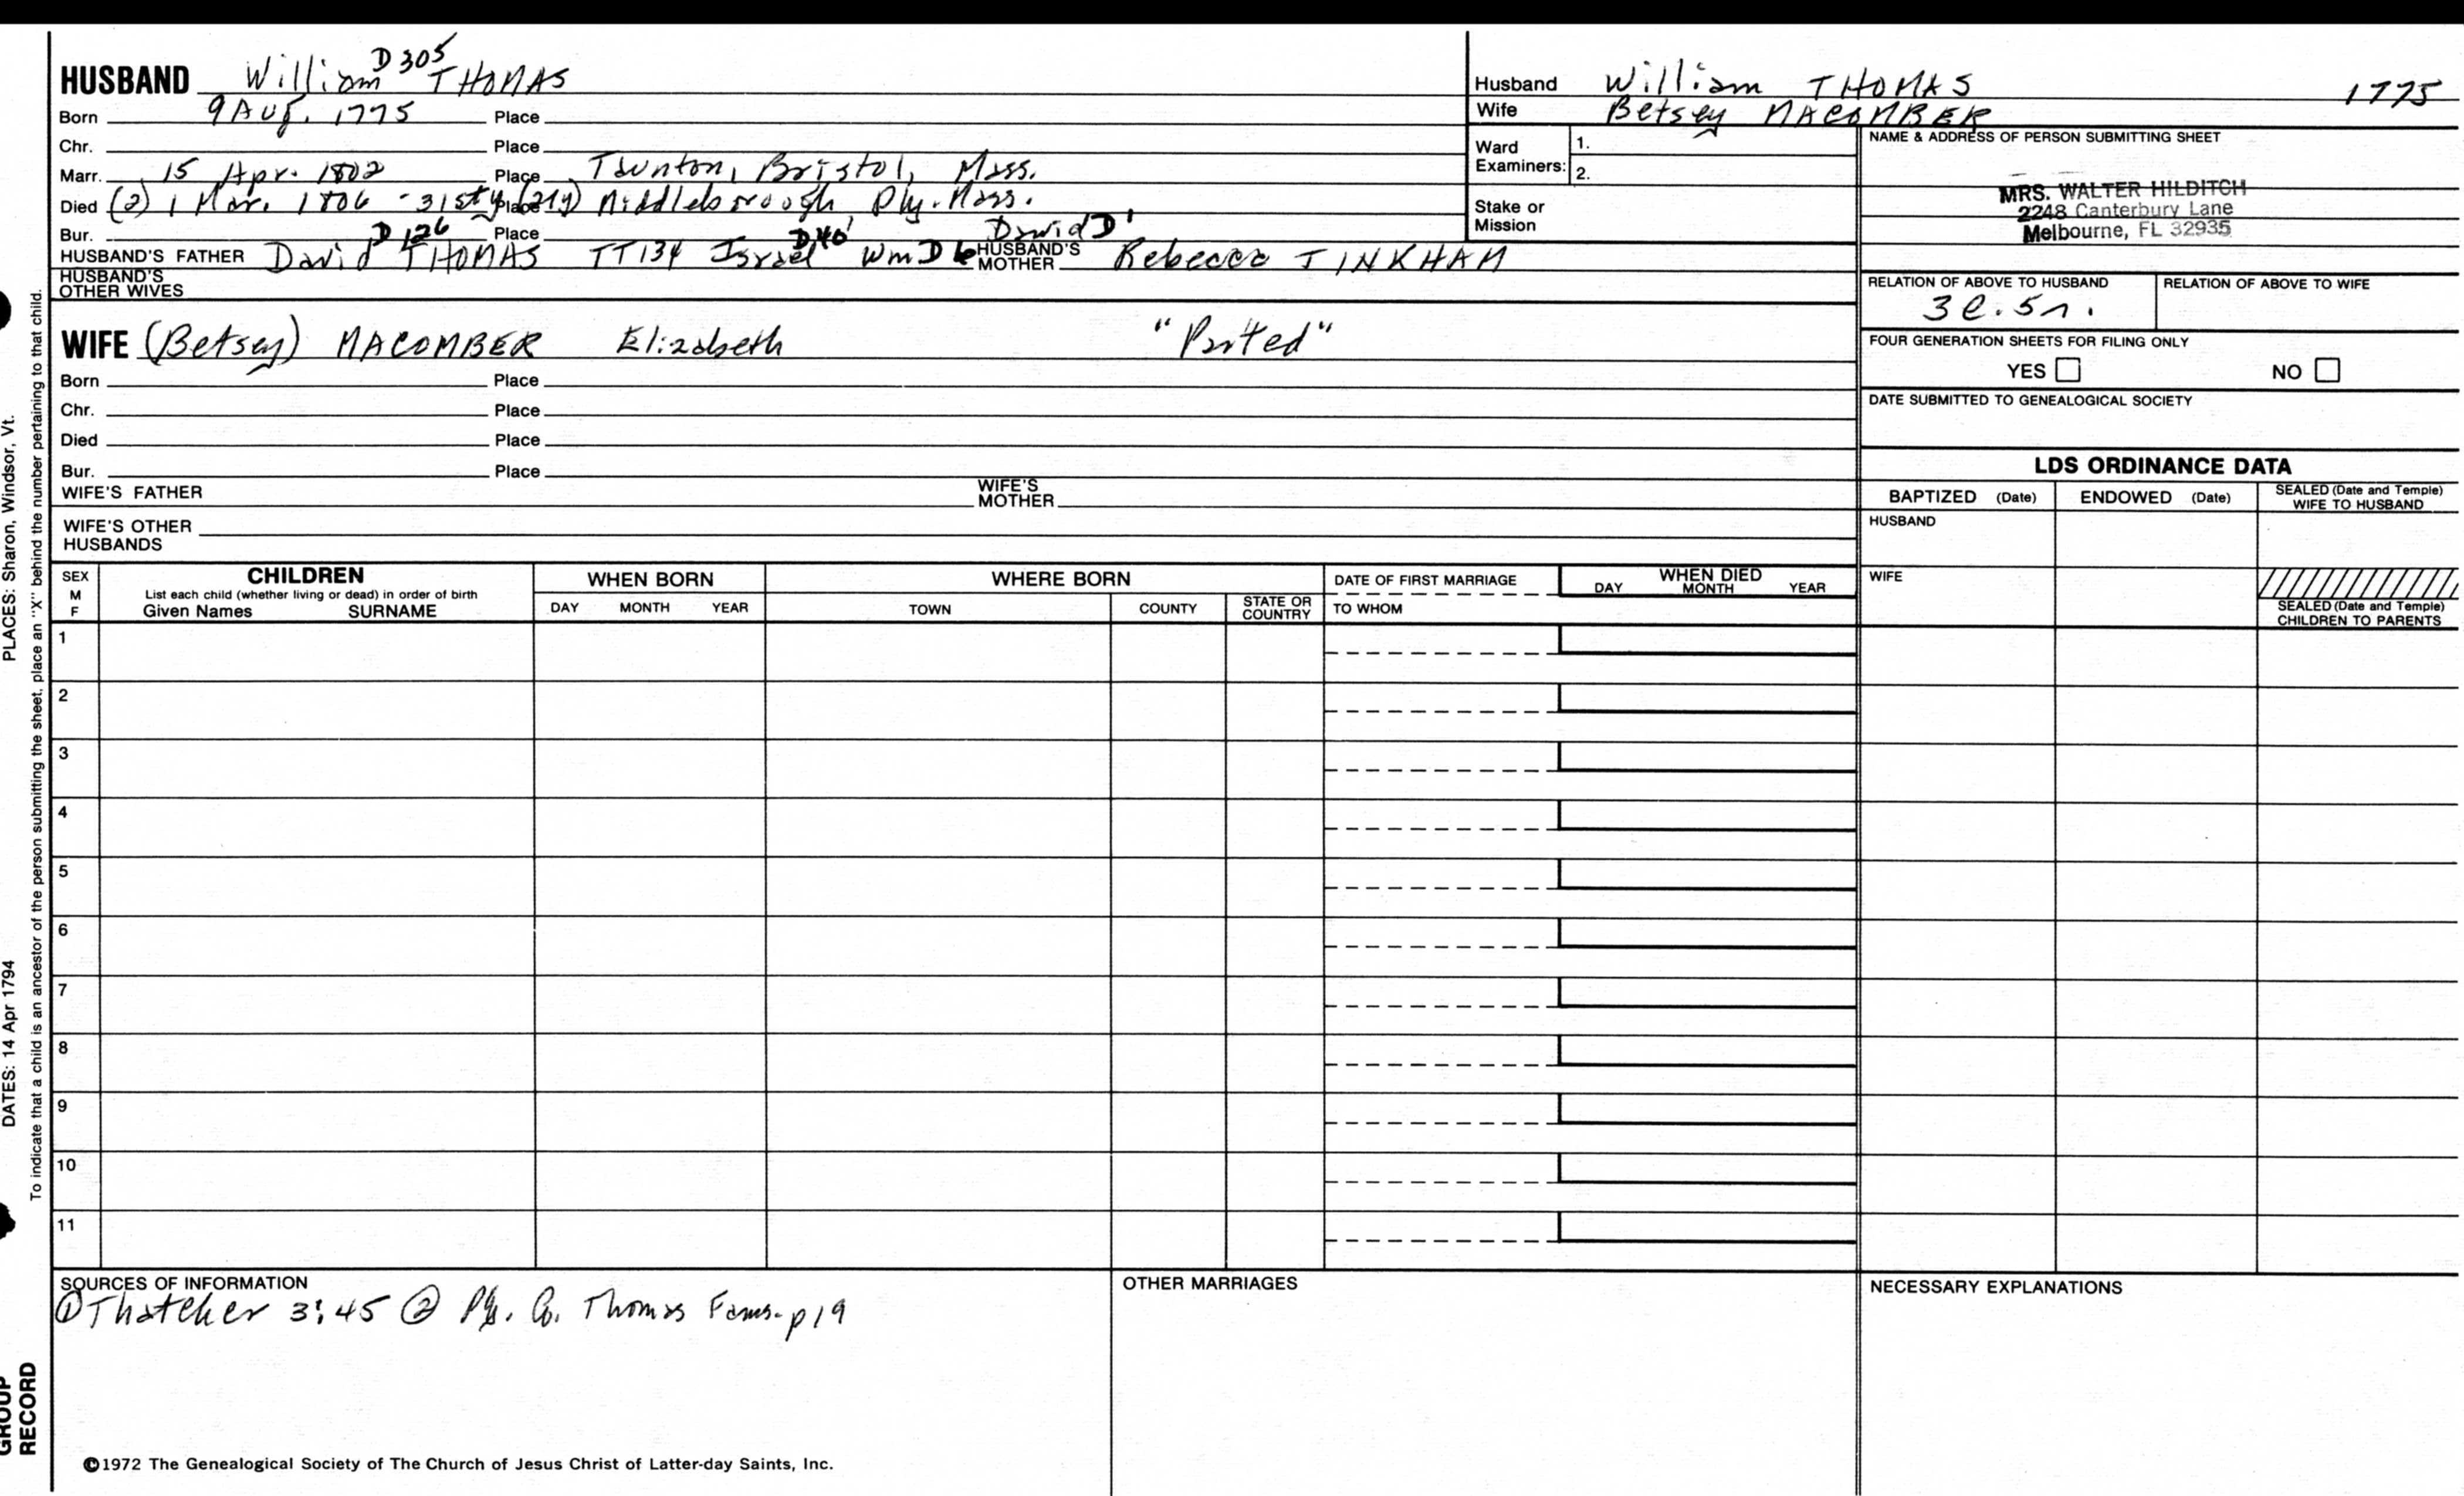 D 305
HUSBAND William THOMAS
Born 9 Aug. 1775 Place
Chr. Place
Marr. 15 Apr. 1802 Place Taunton, Bristol, Mass.
Died (2) 1 Mar. 1806 - 31st y (21y) Place Middleborough, Ply. Mass.
Bur. Place
D 126 D40 David D1
HUSBAND'S FATHER David THOMAS TT134 Israel Wm D6 HUSBAND'S MOTHER Rebecca TINKHAM
HUSBAND'S OTHER WIVES
WIFE (Betsey) MACOMBER Elizabeth
Born Place
Chr. Place
Died Place
Bur. Place
WIFE'S FATHER WIFE'S MOTHER
WIFE'S OTHER HUSBANDS
Husband William THOMAS 1775
Wife Betsey MACOMBER
Ward Examiners: 1.
2.
Stake or Mission
NAME & ADDRESS OF PERSON SUBMITTING SHEET
MRS. WALTER HILDITCH
2248 Canterbury Lane
Melbourne, FL 32935
RELATION OF ABOVE TO HUSBAND RELATION OF ABOVE TO WIFE
FOUR GENERATION SHEETS FOR FILING ONLY
YES NO
DATE SUBMITTED TO GENEALOGICAL SOCIETY
LDS ORDINANCE DATA
BAPTIZED (Date) ENDOWED (Date) SEALED (Date and Temple) WIFE TO HUSBAND
HUSBAND
WIFE
SEALED (Date and Temple) CHILDREN TO PARENTS
SEX M F
CHILDREN
List each child (whether living or dead) in order of birth
Given Names SURNAME
WHEN BORN
DAY MONTH YEAR
WHERE BORN
TOWN COUNTY STATE OR COUNTRY
DATE OF FIRST MARRIAGE
TO WHOM
WHEN DIED
DAY MONTH YEAR
1
2
3
4
5
6
7
8
9
10
11
SOURCES OF INFORMATION
① Thatcher 3:45 ② Thomas Fams. p19
OTHER MARRIAGES
NECESSARY EXPLANATIONS
©1972 The Genealogical Society of The Church of Jesus Christ of Latter-day Saints, Inc.
PLACES: Sharon, Windsor, Vt.
DATES: 14 Apr 1794
To indicate that a child is an ancestor of the person submitting the sheet, place an "X" behind the number pertaining to that child.
GROUP
RECORD